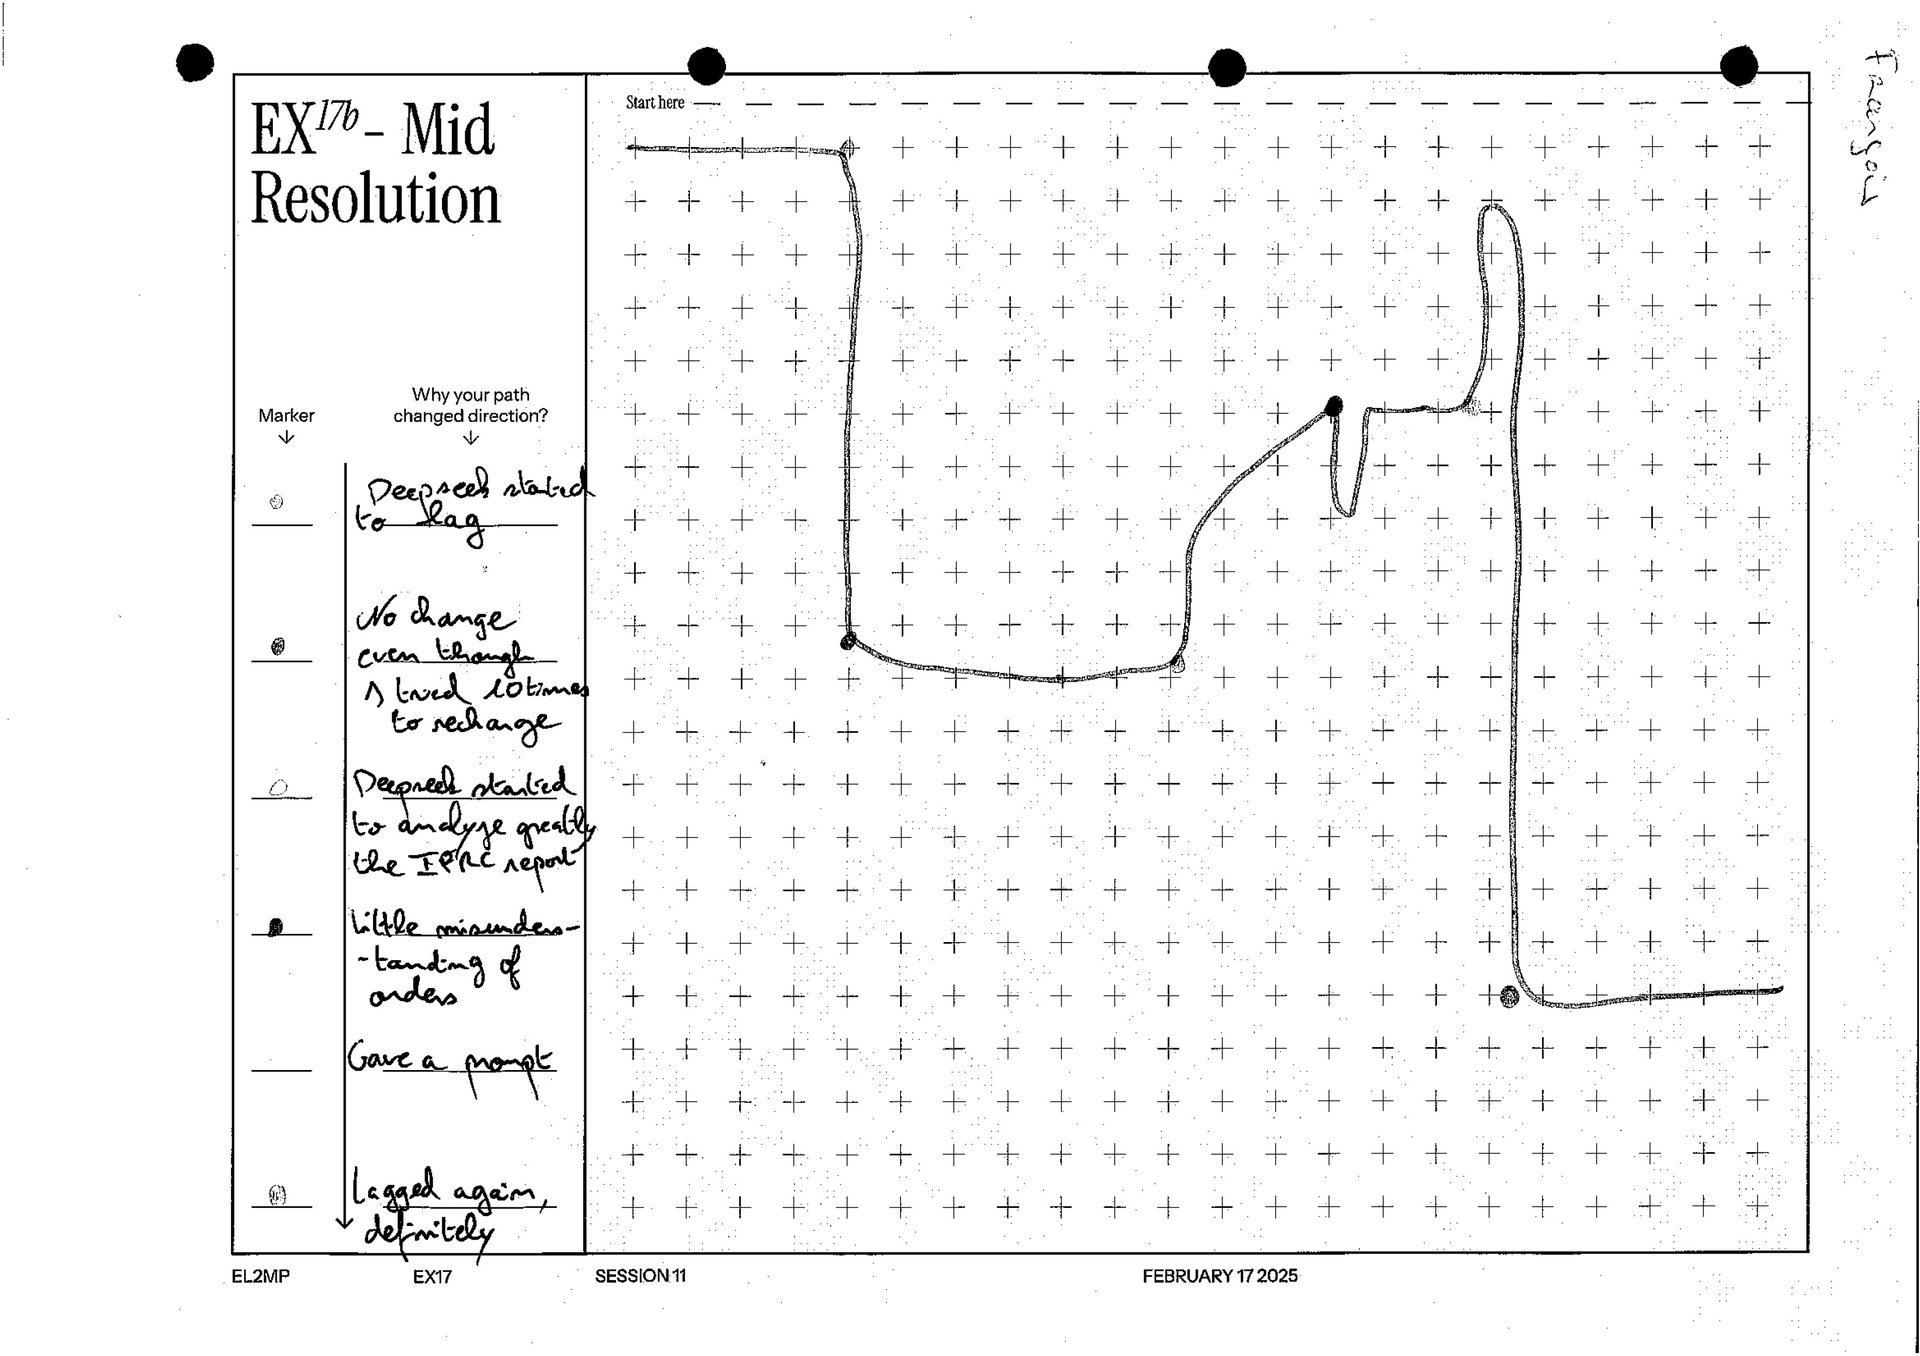 EX17b - Mid
Resolution
Start here
François
Marker
Why your path
changed direction?
Deepseek started
to lag
No change
even though
I tried 10 times
to rechange
Deepseek started
to analyze greatly
the IPRC report
Little misunders-
-tanding of
orders
Gave a prompt
Lagged again,
definitely
EL2MP
EX17
SESSION 11
FEBRUARY 17 2025